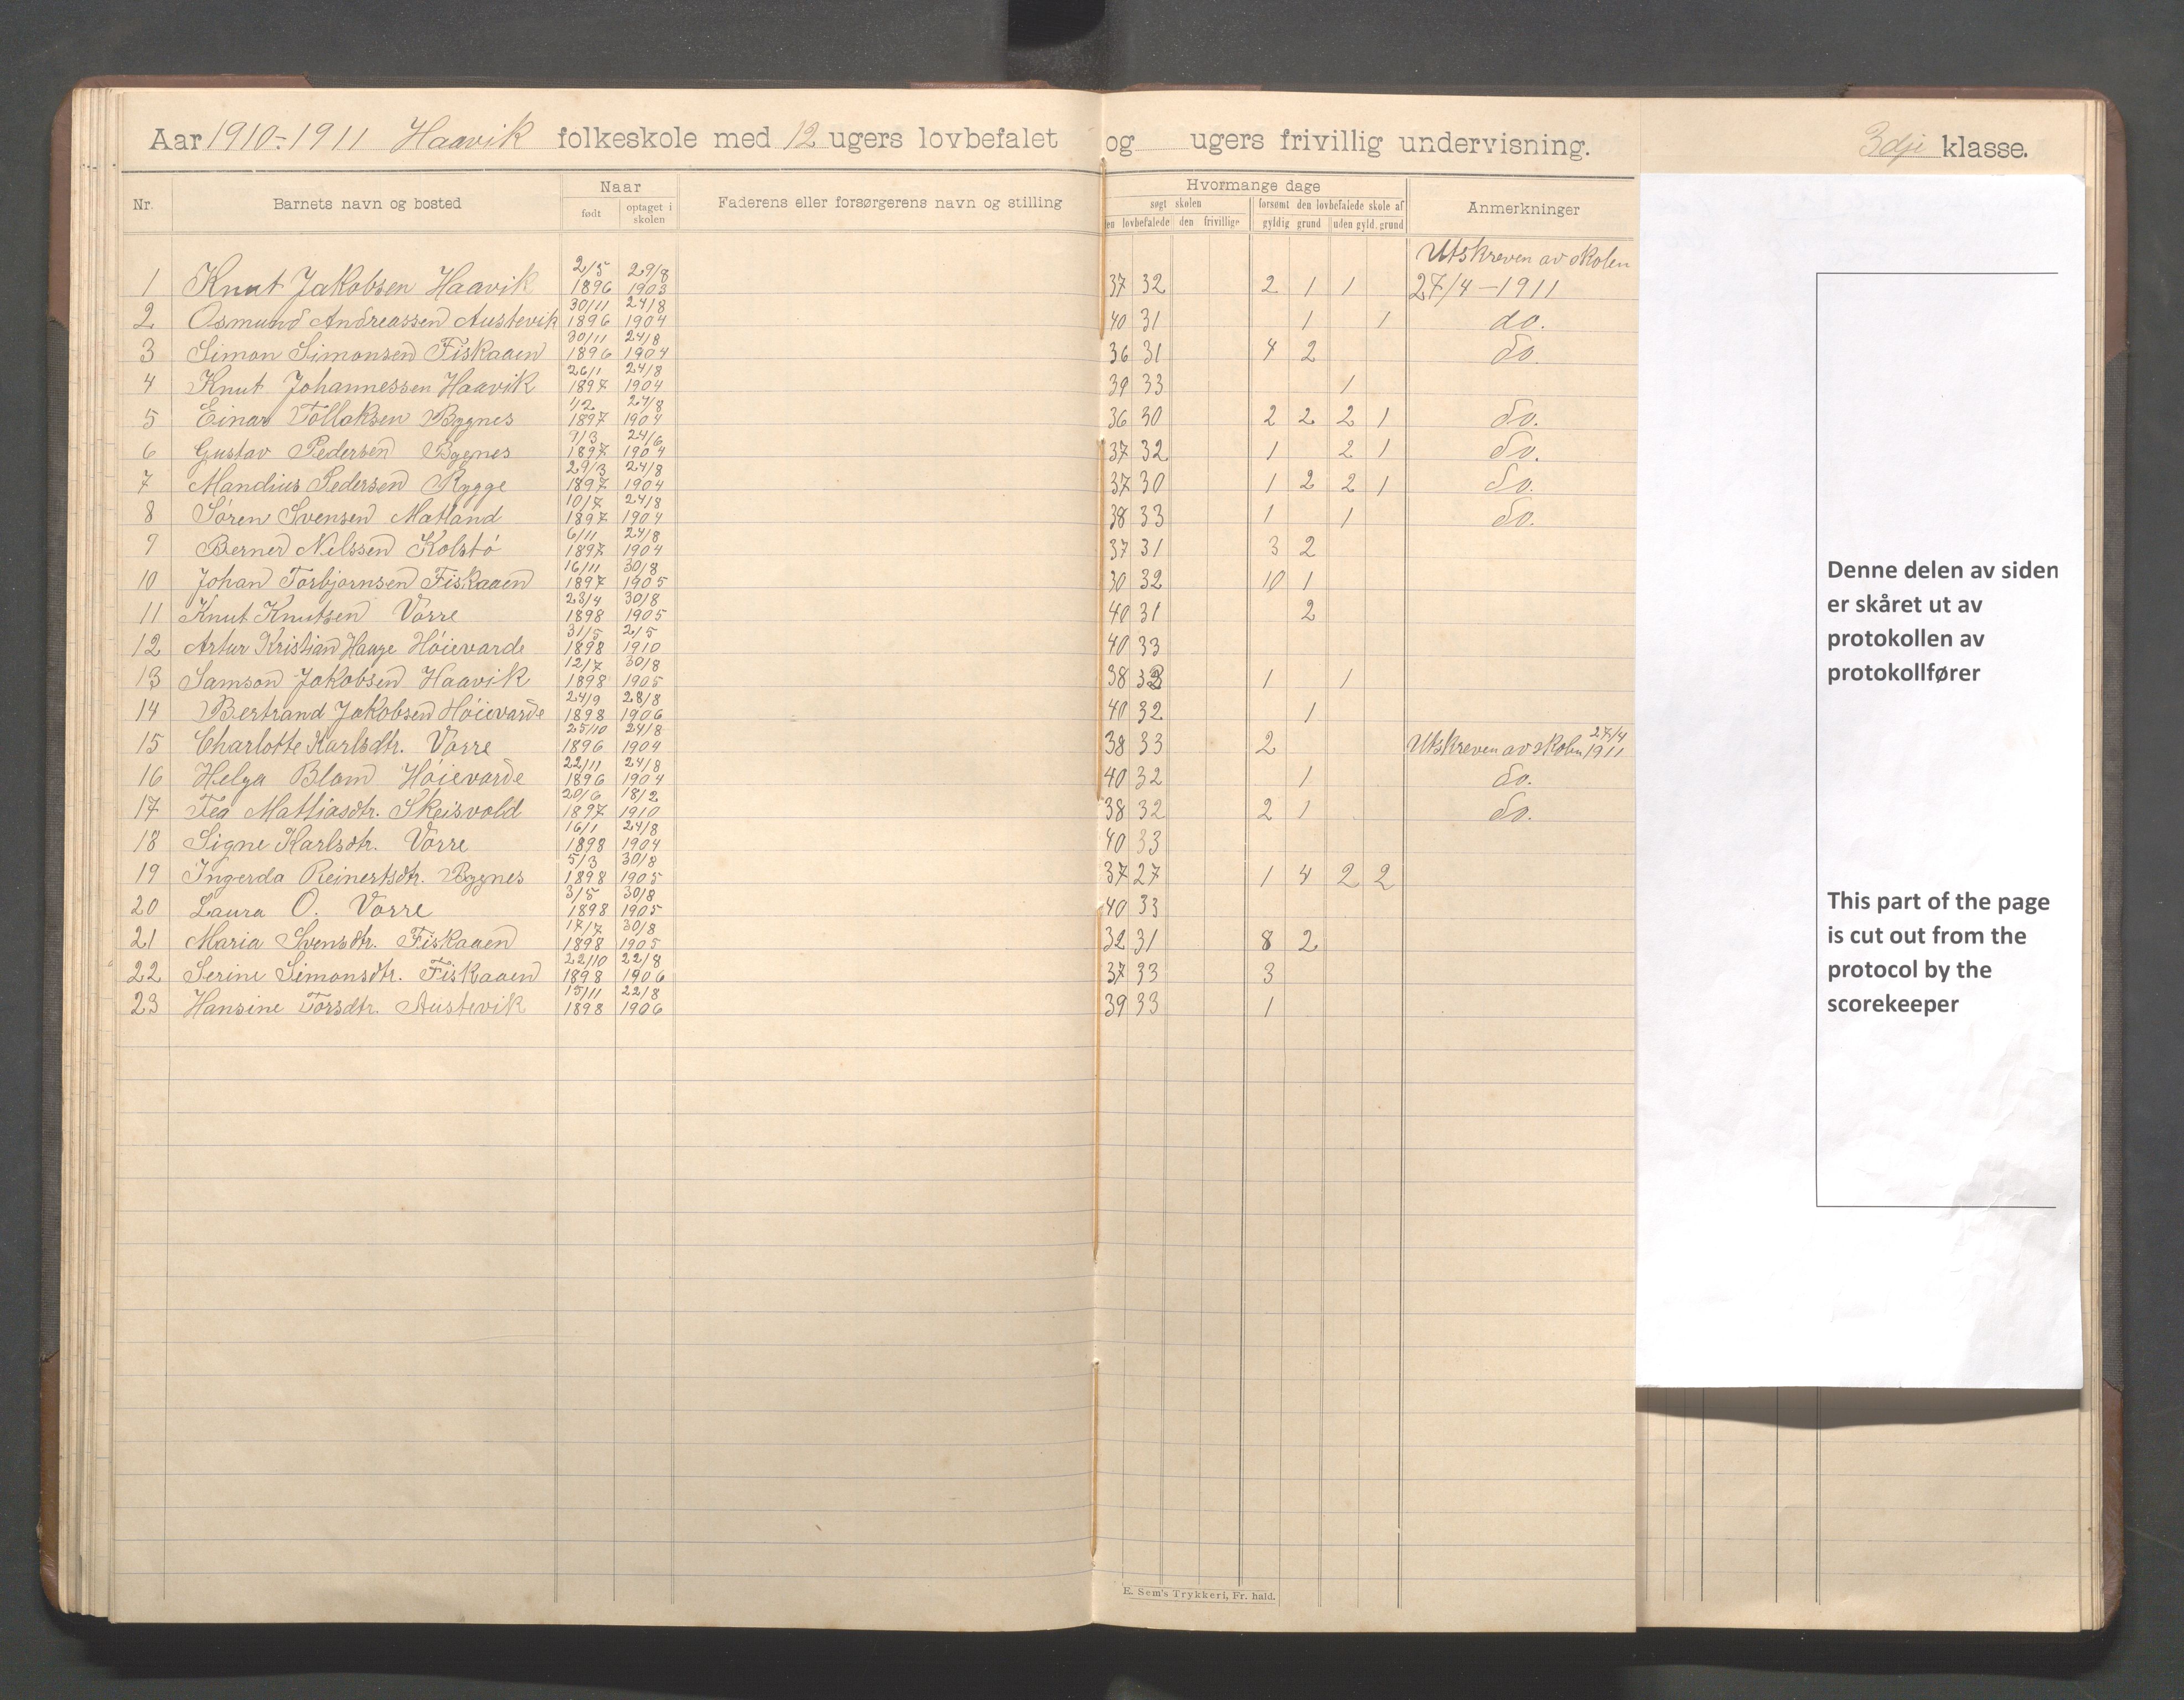 Aar 1910-1911 Haavik folkeskole med 12 ugers lovbefalet og ugers frivillig undervisning. 3dje klasse.
Nr. Barnets navn og bosted Naar født optaget i skolen Faderens eller forsørgerens navn og stilling Hvormange dage søgt skolen den lovbefalede den frivillige forsømt den lovbefalede skole af gyldig grund uden gyld. grund Anmerkninger
Utskreven av skolen
1 Knut Jakobsen Haavik 2/5 1896 29/8 1903 37 32 2 1 1 27/4-1911
2 Osmund Andreassen Austevik 30/11 1896 24/8 1904 40 31 1 1 do.
3 Simon Simonsen Fiskaaen 30/11 1896 24/8 1904 36 31 4 2 do.
4 Knut Johannessen Haavik 26/1 1897 24/8 1904 39 33 1
5 Einar Tollaksen Bygnes 1/2 1897 24/8 1904 36 30 2 2 2 1 do.
6 Gustav Pedersen Bygnes 9/3 1897 24/6 1904 37 32 1 2 1 do.
7 Mandius Pedersen Rygge 29/3 1897 24/8 1904 37 30 1 2 2 1 do.
8 Søren Svensen Matland 10/7 1897 24/8 1904 38 33 1 1 do.
9 Berner Nilssen Kolstø 6/11 1897 24/8 1904 37 31 3 2
10 Johan Torbjørnsen Fiskaaen 16/11 1897 30/8 1905 30 32 10 1
11 Knut Knutsen Vorre 23/4 1898 30/8 1905 40 31 2
12 Artur Kristian Hauge Høievarde 31/5 1898 2/5 1910 40 33
13 Samson Jakobsen Haavik 12/7 1898 30/8 1905 38 33 1 1
14 Bertrand Jakobsen Høievarde 24/9 1898 28/8 1906 40 32 1
15 Charlotte Karlsdtr. Vorre 25/10 1896 24/8 1904 38 33 2 Utskreven av skolen 27/4 1911
16 Helga Blom Høievarde 22/11 1896 24/8 1904 40 32 1 do.
17 Tea Mattiasdtr. Skeisvold 20/6 1897 18/2 1910 38 32 2 1 do.
18 Signe Karlsdtr. Vorre 16/1 1898 24/8 1904 40 33
19 Ingerda Reinertsdtr. Bygnes 5/3 1898 30/8 1905 37 27 1 4 2 2
20 Laura O. Vorre 3/5 1898 30/8 1905 40 33
21 Maria Svensdtr. Fiskaaen 17/7 1898 30/8 1905 32 31 8 2
22 Serine Simonsdtr. Fiskaaen 22/10 1898 22/8 1906 37 33 3
23 Hansine Torsdtr. Austevik 15/11 1898 22/8 1906 39 33 1
E. Sem's Trykkeri, Fr. hald.
Denne delen av siden
er skåret ut av
protokollen av
protokollfører
This part of the page
is cut out from the
protocol by the
scorekeeper